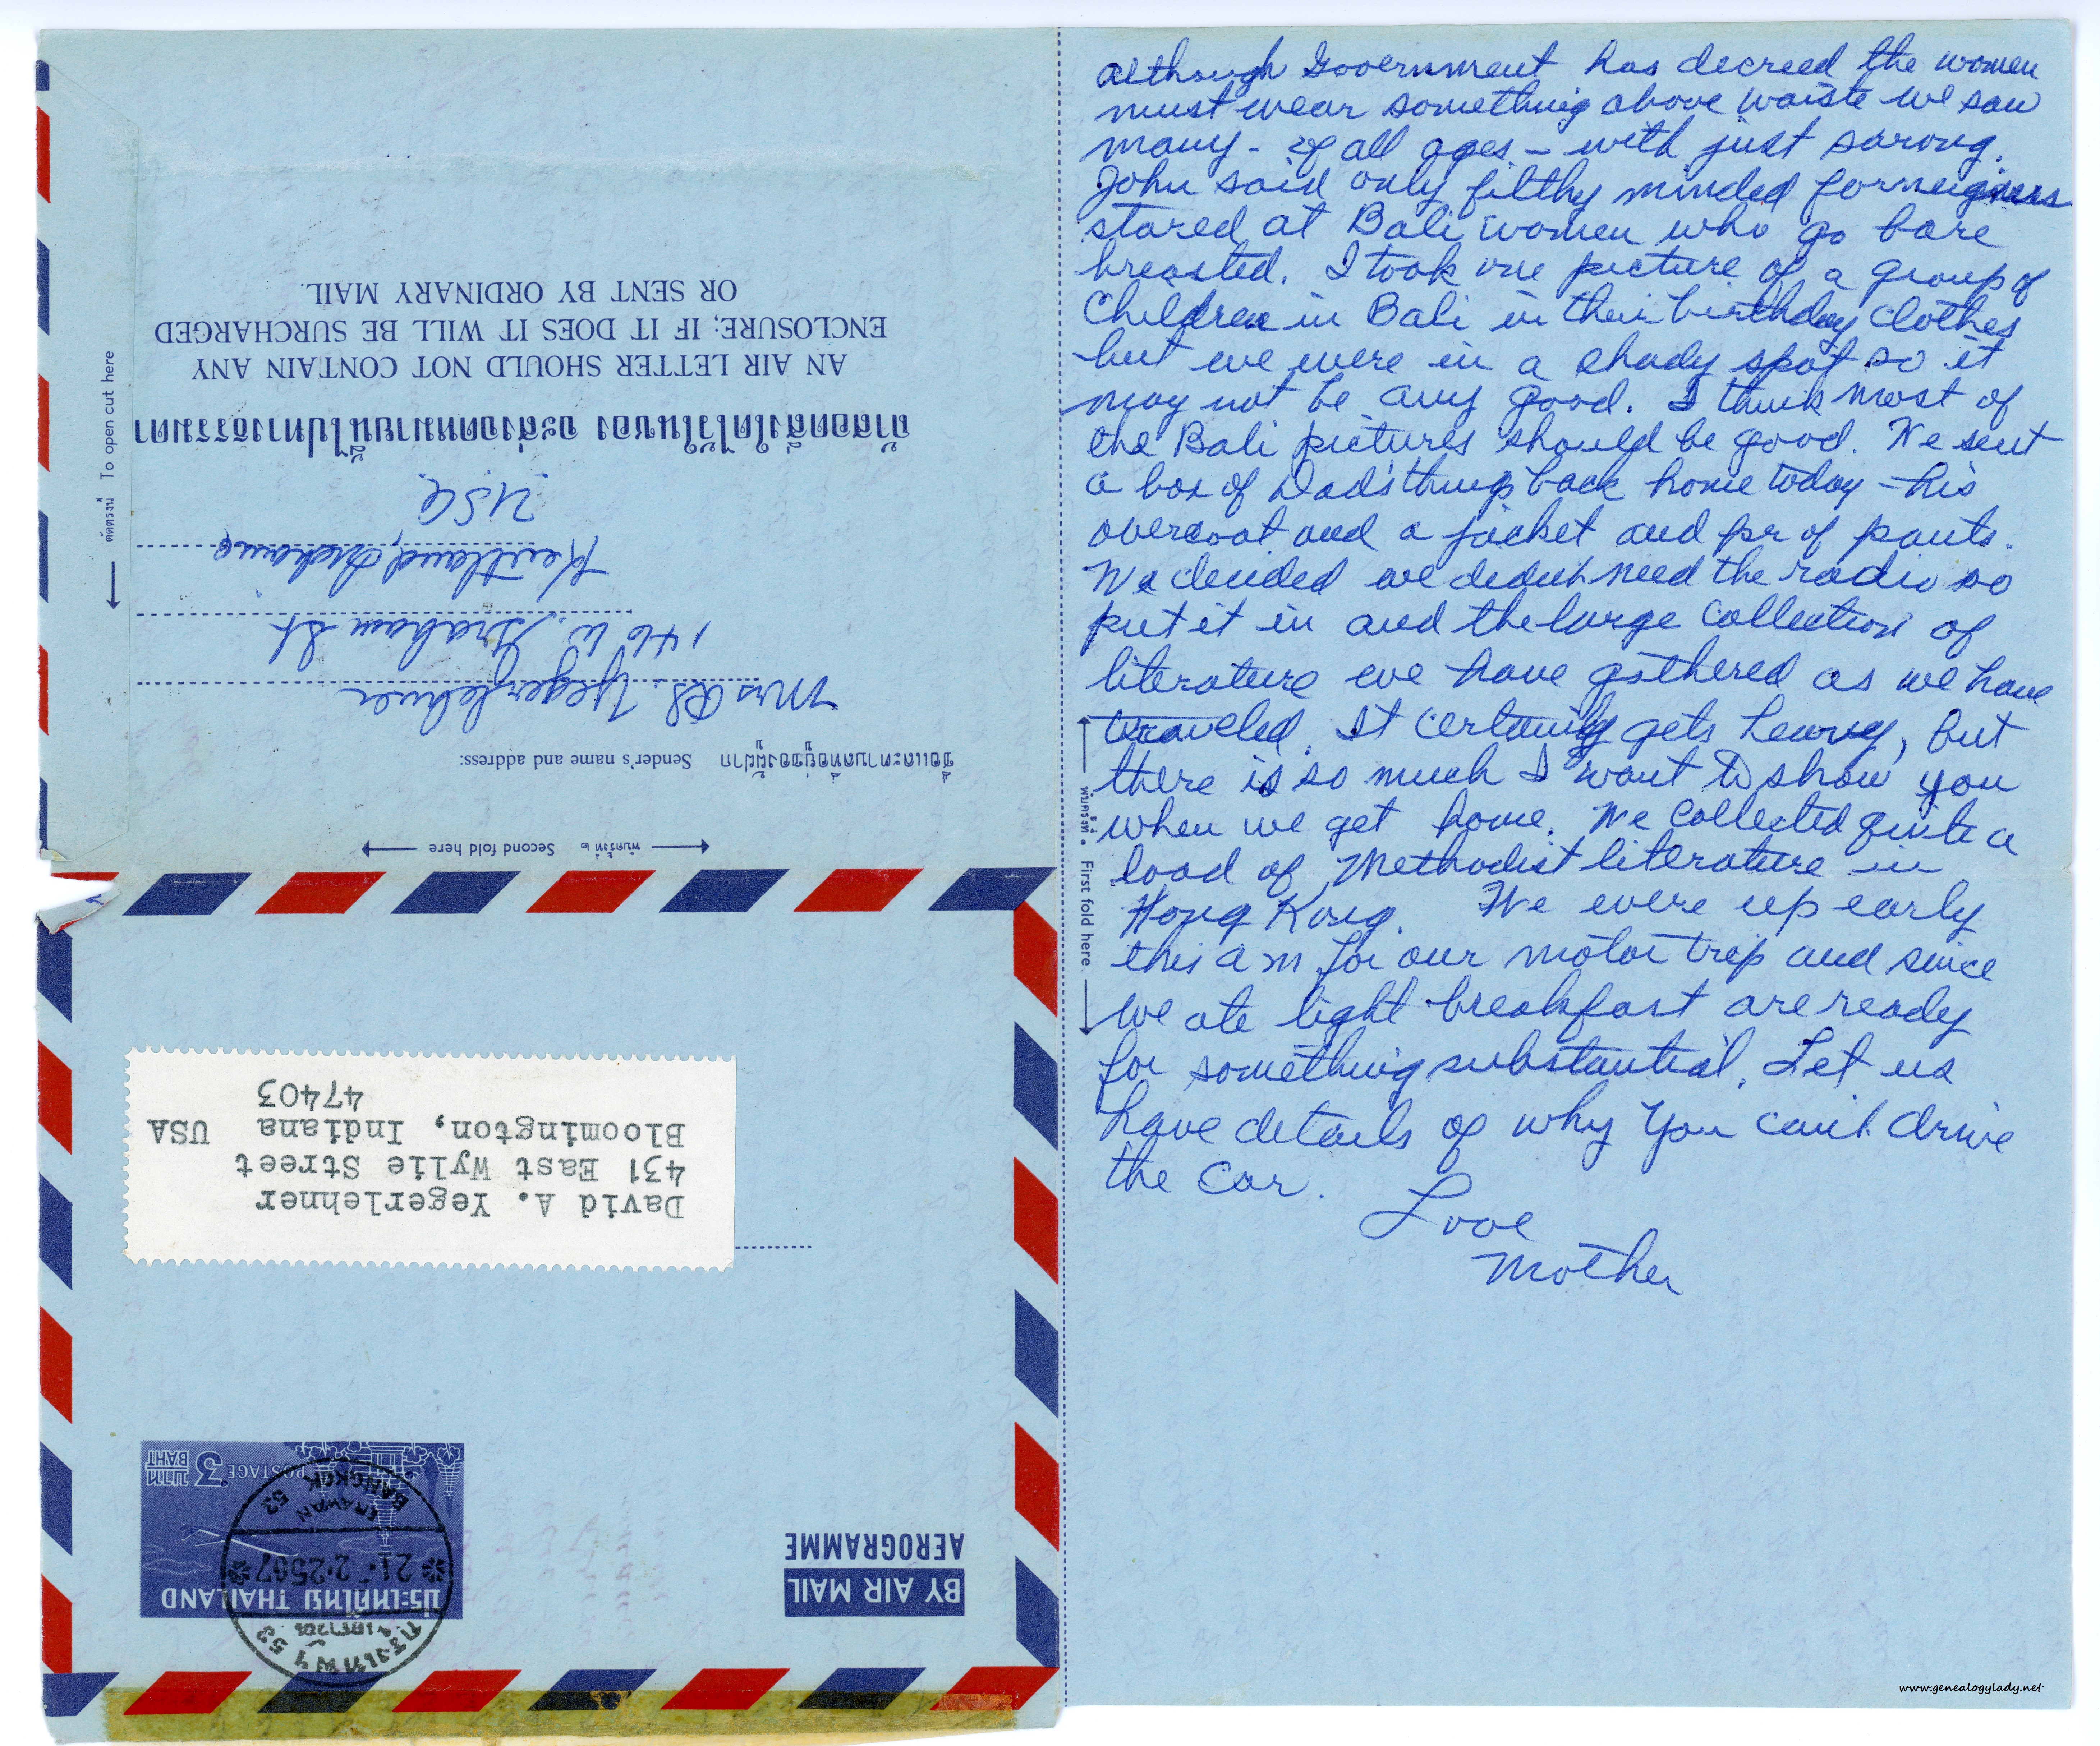 although Government has decreed the women
must wear something above waiste we saw
many - of all ages - with just sarong.
John said only filthy minded forneigners
stared at Bali women who go bare
breasted. I took one picture of a group of
Children in Bali in their birthday clothes
but we were in a shady spot so it
may not be any good. I think most of
the Bali pictures should be good. We sent
a box of Dad's things back home today - his
overcoat and a jacket and pr of pants.
We decided we didnt need the radio so
put it in and the large collection of
literature we have gathered as we have
traveled. It certainly gets heavy, but
there is so much I want to show you
when we get home. We collected quite a
load of Methodist literature in
Hong Kong. We were up early
this a m for our motor trip and since
we ate light breakfast are ready
for something substantial. Let us
have details of why you can't drive
the car.
Love
Mother
พับครั้งที่ ๑ First fold here
BY AIR MAIL
AEROGRAMME
ประเทศไทย THAILAND
POSTAGE 3 บาท BAHT
กรุงเทพฯ 53
21-2-2507
ERAWAN 53
BANGKOK
David A. Yegerlehner
431 East Wylie Street
Bloomington, Indiana USA
47403
พับครั้งที่ ๒ Second fold here
ชื่อและตำบลที่อยู่ของผู้ฝาก Sender's name and address:
Mrs RS. Yegerlehner
146 W. Graham St
Kentland, Indiana
USA
ถ้าสอดสิ่งใดไว้ในซอง จะส่งจดหมายนี้ไปทางธรรมดา
AN AIR LETTER SHOULD NOT CONTAIN ANY
ENCLOSURE; IF IT DOES IT WILL BE SURCHARGED
OR SENT BY ORDINARY MAIL.
ตัดตรงนี้ To open cut here
www.genealogylady.net